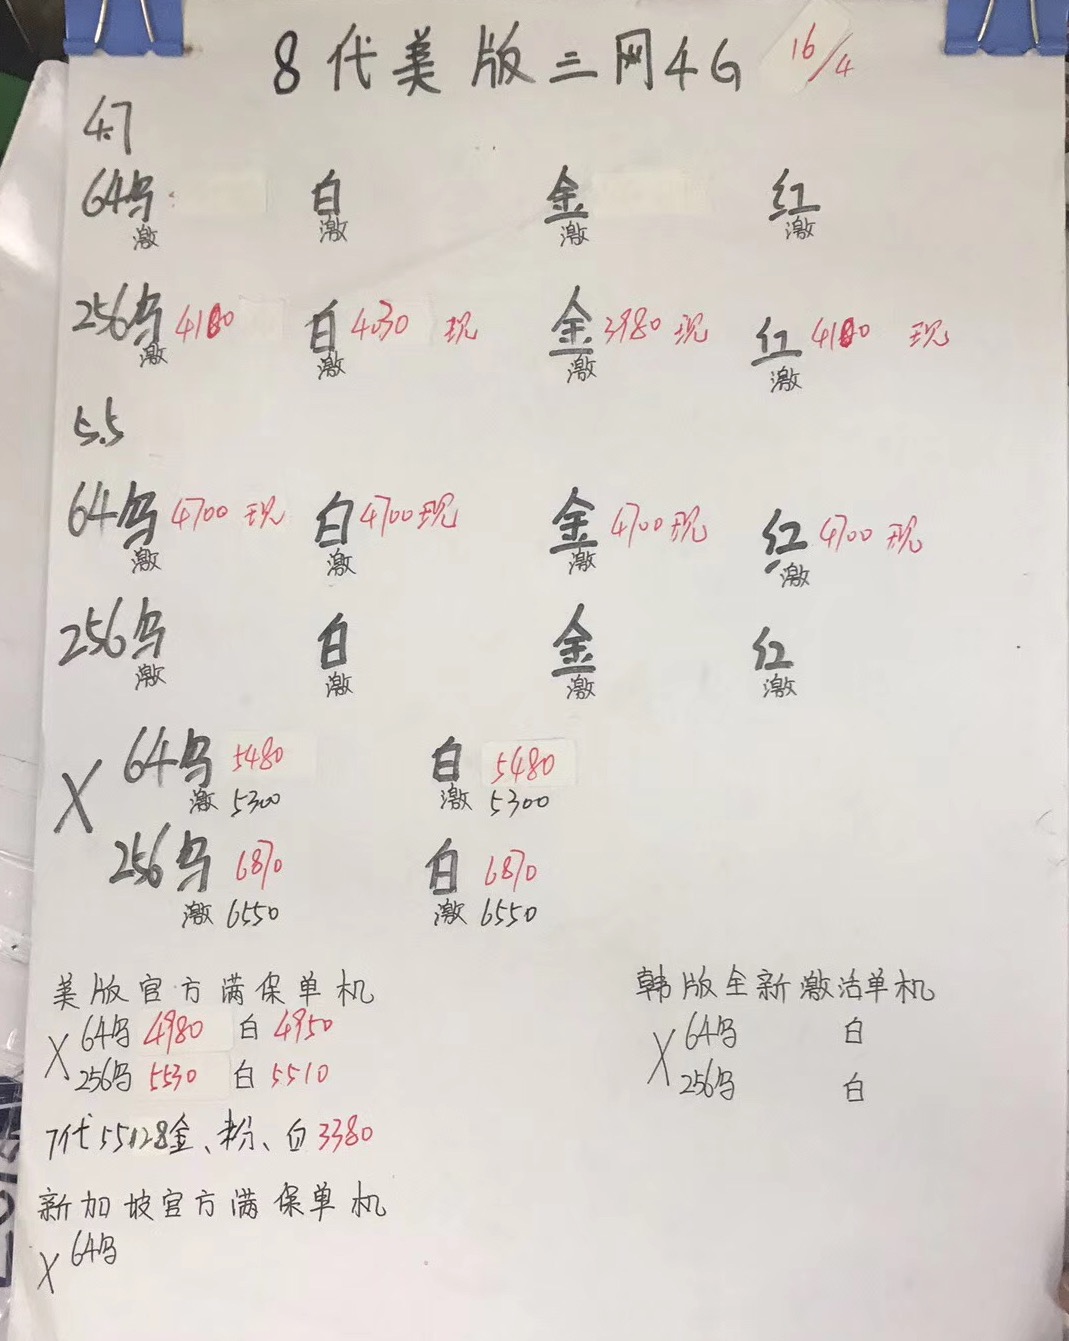 8代美版三网4G 16/4
4.7
64乌 白 金 红
激 激 激 激
256乌 4180 白 4030 现 金 3980 现 红 4180 现
激 激 激 激
5.5
64乌 4700 现 白 4700 现 金 4700 现 红 4700 现
激 激 激 激
256乌 白 金 红
激 激 激 激
X 64乌 5480 白 5480
激 5300 激 5300
256乌 6870 白 6870
激 6550 激 6550
美版官方满保单机 韩版全新激活单机
X 64乌 4980 白 4950 X 64乌 白
256乌 5530 白 5510 256乌 白
7代55128金、粉、白3380
新加坡官方满保单机
X 64乌